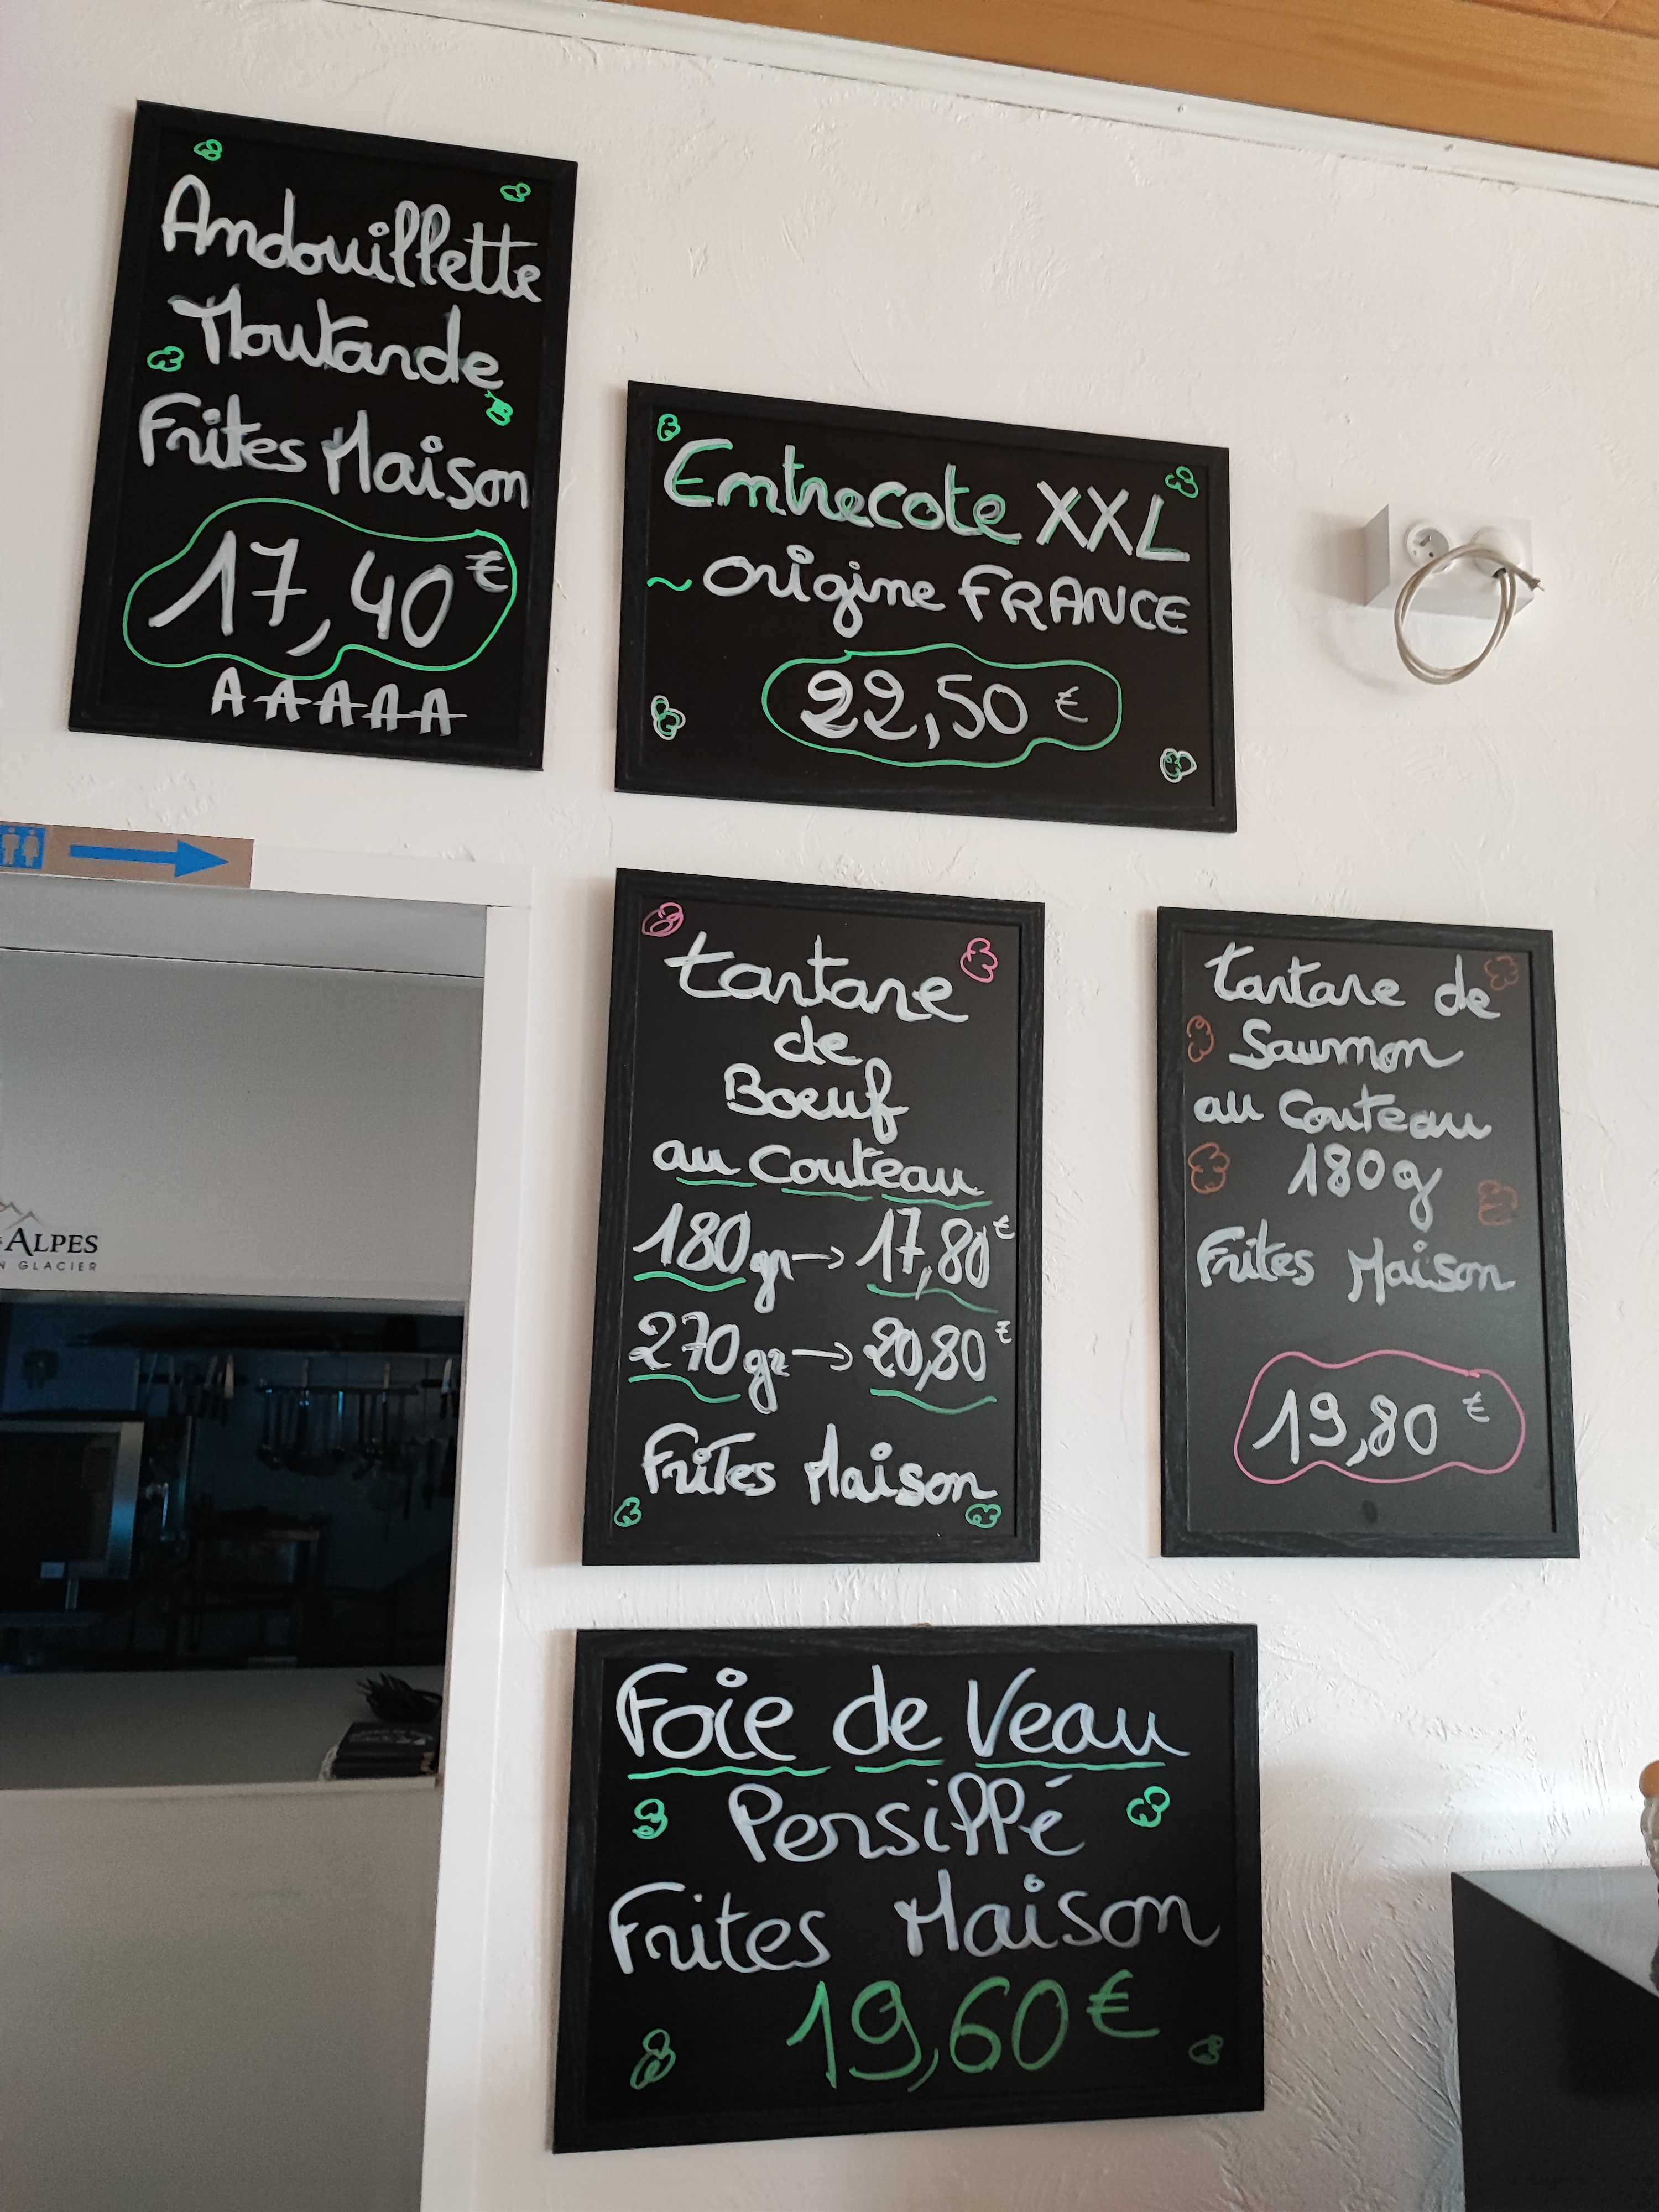 Andouillette
Moutarde
Frites Maison
17,40 €
AAAAA
Entrecote XXL
~ origine FRANCE
22,50 €
tartare
de
Boeuf
au Couteau
180 gr → 17,80 €
270 gr → 20,80 €
Frites Maison
tartare de
Saumon
au Couteau
180g
Frites Maison
19,80 €
Foie de Veau
Persillé
Frites Maison
19,60 €
ALPES
GLACIER